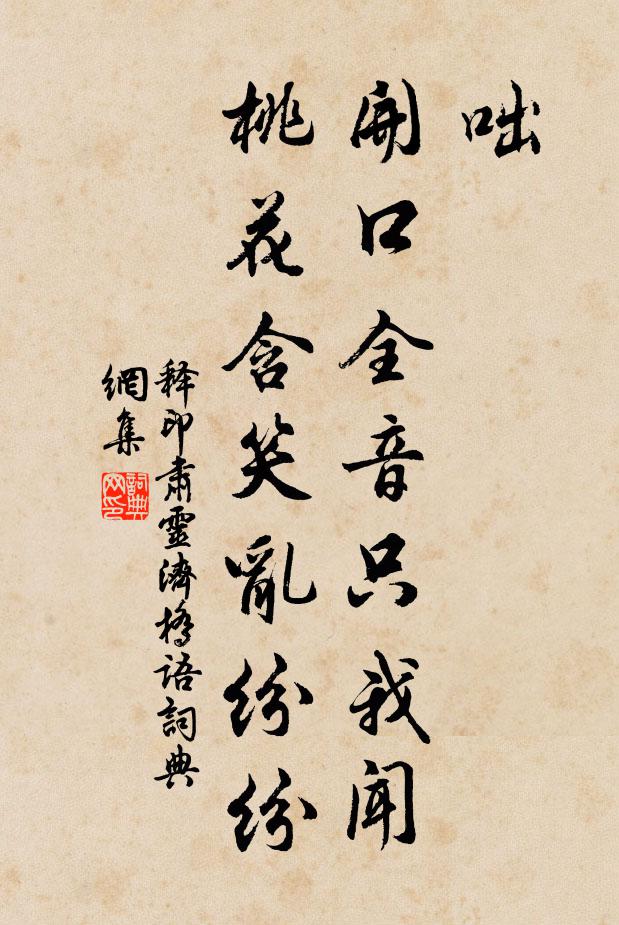 咄
開口全音只我聞
桃花含笑亂紛紛
释印肅靈濟橋語詞典
網集
詞典
网印